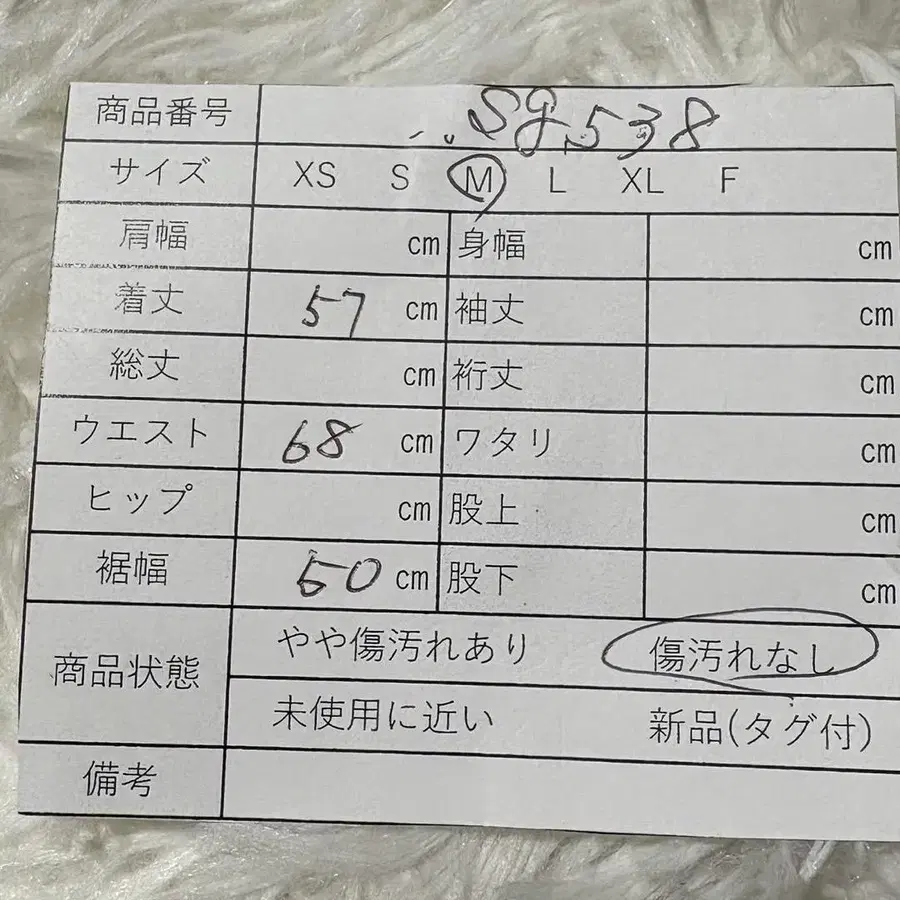 商品番号 Sg538
サイズ XS S M L XL F
肩幅 cm 身幅 cm
着丈 57 cm 袖丈 cm
総丈 cm 裄丈 cm
ウエスト 68 cm ワタリ cm
ヒップ cm 股上 cm
裾幅 50 cm 股下 cm
商品状態 やや傷汚れあり 傷汚れなし
未使用に近い 新品(タグ付)
備考